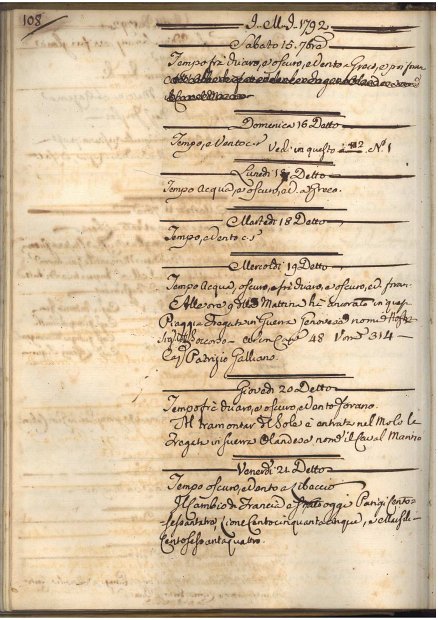 108
J. M. J. 1792
Sabato 15. 7bre
Tempo frà chiaro, e oscuro, e Vento a Greco, e poi fran.
Domenica 16 Detto
Tempo, e Vento c.s. Vedi in questo N.º 1
Lunedì 17 Detto
Tempo Acqua, e oscuro, e V. a Greco.
Martedì 18 Detto
Tempo, e Vento c.s
Mercoldì 19 Detto
Tempo Acqua, oscuro, e frà chiaro, e oscuro, e V. fran.
Alle ore 9 della Mattina hà Ancorato in questa
Piaggia Fregata in Guerra Genovese nom.
Secondo con 48 Uom. 314
Patrizio Galliano.
Giovedì 20 Detto
Tempo frà chiaro, e oscuro, e Vento forano.
Al tramontar di Sole è entrata nel Molo la
Fregata in Guerra Olandese nom. il
Venerdì 21 Detto
Tempo oscuro, e Vento a Libaccio
Il Cambio di Francia è stato oggi Parigi Cento-
sessantatre, Lione Centocinquantacinque, e Marsili
Centosessantaquattro.